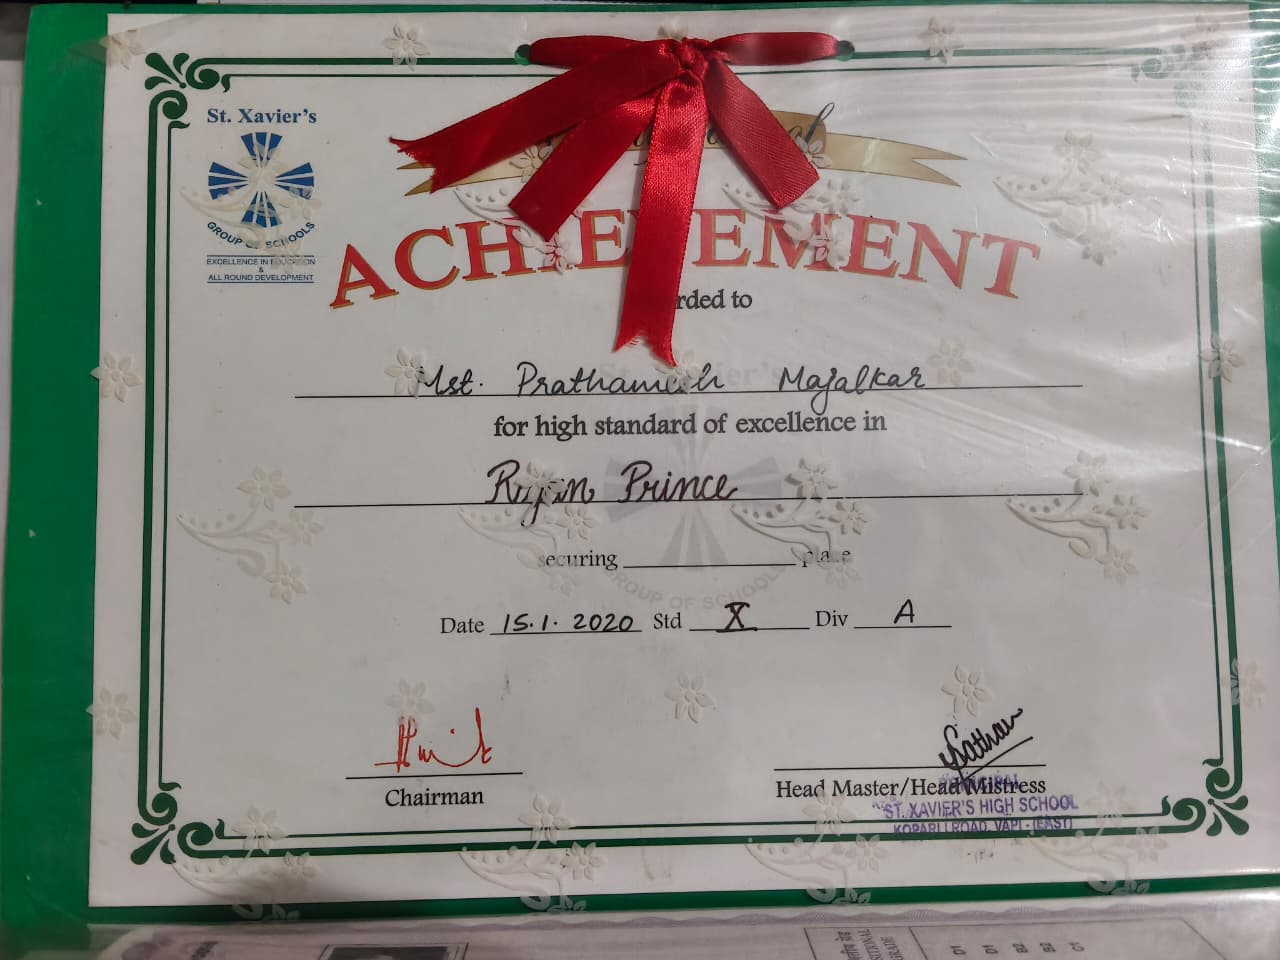 St. Xavier's
GROUP OF SCHOOLS
EXCELLENCE IN EDUCATION
&
ALL ROUND DEVELOPMENT
ACHIEVEMENT
rded to
Mst. Prathamesh Majalkar
for high standard of excellence in
Prince
securing place
Date 15.1.2020 Std X Div A
Chairman
Head Master/Head Mistress
PRINCIPAL
ST. XAVIER'S HIGH SCHOOL
KOPARLI ROAD, VAPI - (EAST)